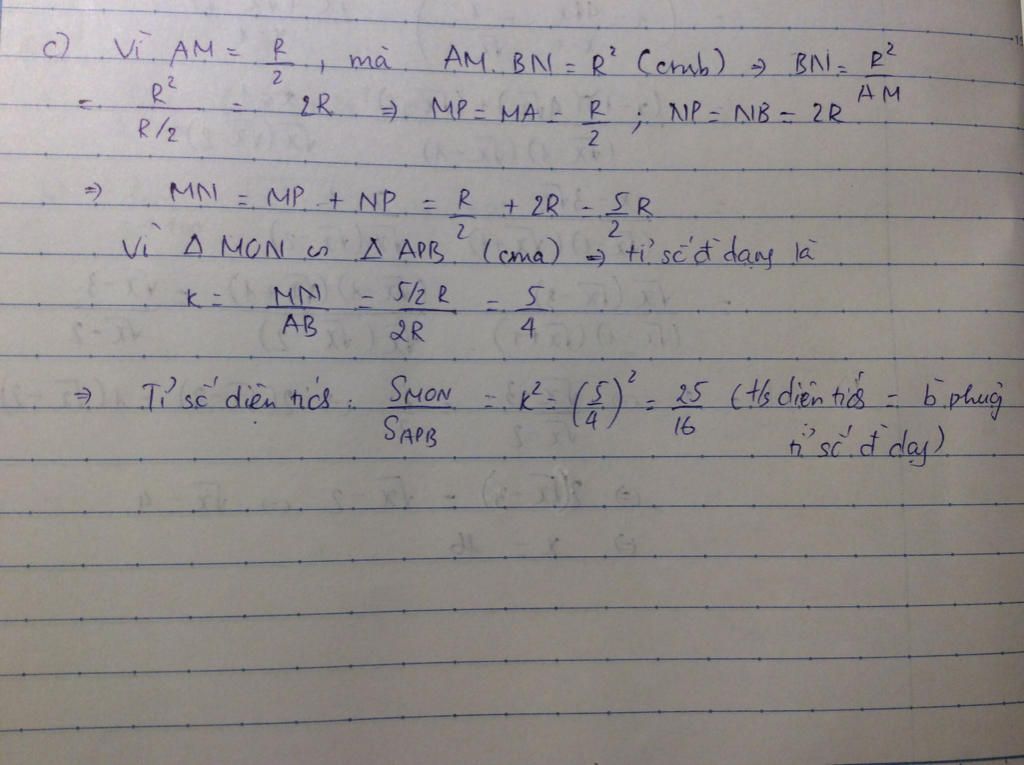 c) Vì AM = R/2 , mà AM. BN = R² (cmb) => BN = R²/AM
= R²/(R/2) = 2R => MP = MA = R/2 ; NP = NB = 2R
=> MN = MP + NP = R/2 + 2R = 5/2 R
Vì Δ MON ∽ Δ APB (cma) => tỉ số đ dạng là
K = MN/AB = (5/2 R)/2R = 5/4
=> Tỉ số diện tích : S_MON/S_APB = K² = (5/4)² = 25/16 (t/s diện tích = b phương
tỉ số đ dạng)